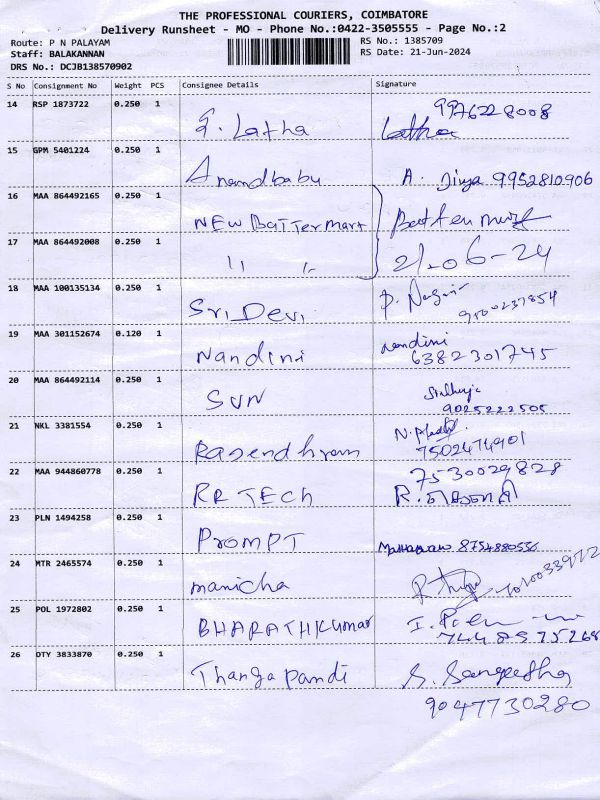 THE PROFESSIONAL COURIERS, COIMBATORE
Delivery Runsheet - MO - Phone No.:0422-3505555 - Page No.:2
Route: P N PALAYAM
RS No.: 1385709
Staff: BALAKANNAN
RS Date: 21-Jun-2024
DRS No.: DCJB138570902
S No Consignment No Weight PCS Consignee Details Signature
14 RSP 1873722 0.250 1 S. Latha Latha 9976228008
15 GPM 5401224 0.250 1 Anandbabu A. Jiya 9952810906
16 MAA 864492165 0.250 1 NEW BaTTer Mart
17 MAA 864492008 0.250 1 11 11 21-06-24
18 MAA 100135134 0.250 1 Sri Devi
19 MAA 301152674 0.120 1 Nandini nandini 6382301745
20 MAA 864492114 0.250 1 SUN 9025222505
21 NKL 3381554 0.250 1 Rasendhram 7502474901
22 MAA 944860778 0.250 1 RR TECh 7530029828
23 PLN 1494258 0.250 1 PROMPT 8754880556
24 MTR 2465574 0.250 1 manicha
25 POL 1972802 0.250 1 BHARATHKumar 7448575268
26 DTY 3833870 0.250 1 Thangapandi S. Sangeetha
9047730280